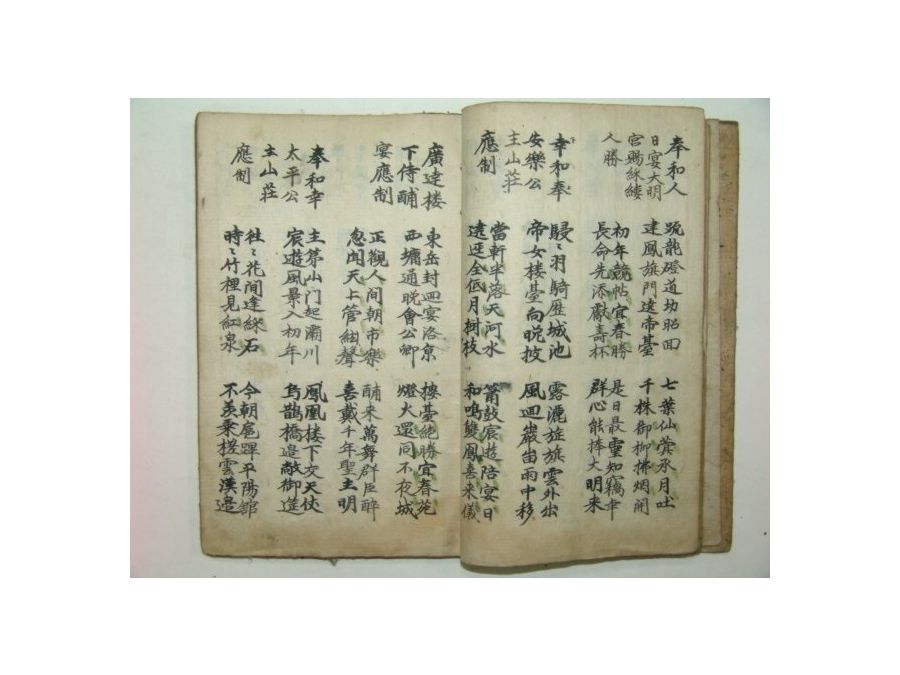 奉和人
日宴大明
宮賜綵縷
人勝
疏龍磴道切昭回
建鳳旗門遶帝臺
七葉仙蓂承月吐
千株御柳拂烟開
初年競帖宜春勝
長命先添獻壽杯
是日最靈知竊幸
群心能捧大明来
幸和奉
安樂公
主山莊
應制
駸〻羽騎歷城池
帝女楼臺向晚披
露灑旌旗雲外出
風迴巖岀雨中移
當軒半落天河水
遶逕全低月樹枝
簫鼓宸遊陪宴日
和鳴雙鳳喜来儀
廣達楼
下侍酺
宴應制
東岳封迴宴洛京
西墉通晚會公卿
樓臺絶勝宜春苑
燈火還同不夜城
正觀人間朝市樂
忽聞天上管絃聲
酺来萬舞群臣醉
喜戴千年聖主明
奉和幸
太平公
主山莊
應制
主第山門起灞川
宸遊風景入初年
鳳凰樓下交天仗
烏鵲橋邉敞御筵
往〻花間逢綵石
時〻竹裡見紅泉
今朝扈蹕平陽舘
不羨乗槎雲漢邉